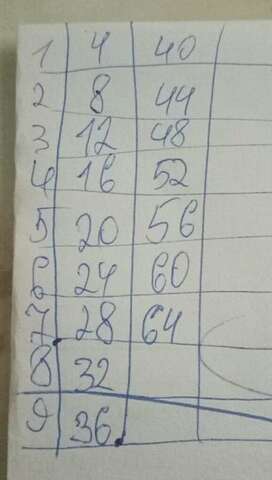 1 4 40
2 8 44
3 12 48
4 16 52
5 20 56
6 24 60
7 28 64
8 32
9 36